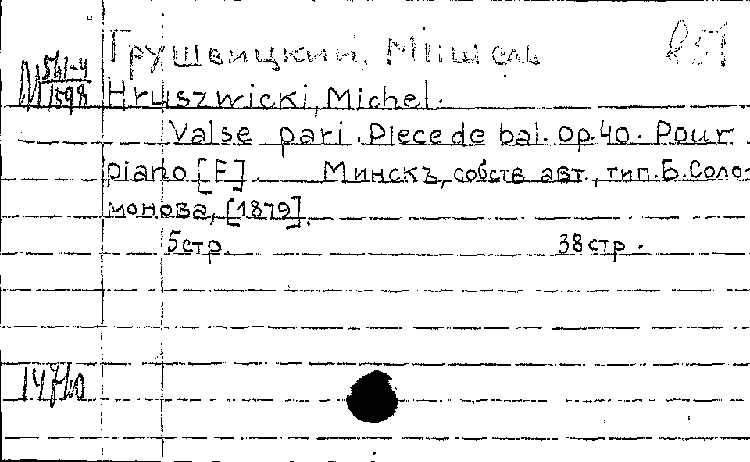 Грушвицкий, Мишель
М 561-4
1598
Hruszwicki, Michel.
Valse pari. Piece de bal. Op. 40. Pour
piano [F]. Минскъ, собств авт., тип. Б. Соло-
монова, [1879].
5 стр. 38 стр.